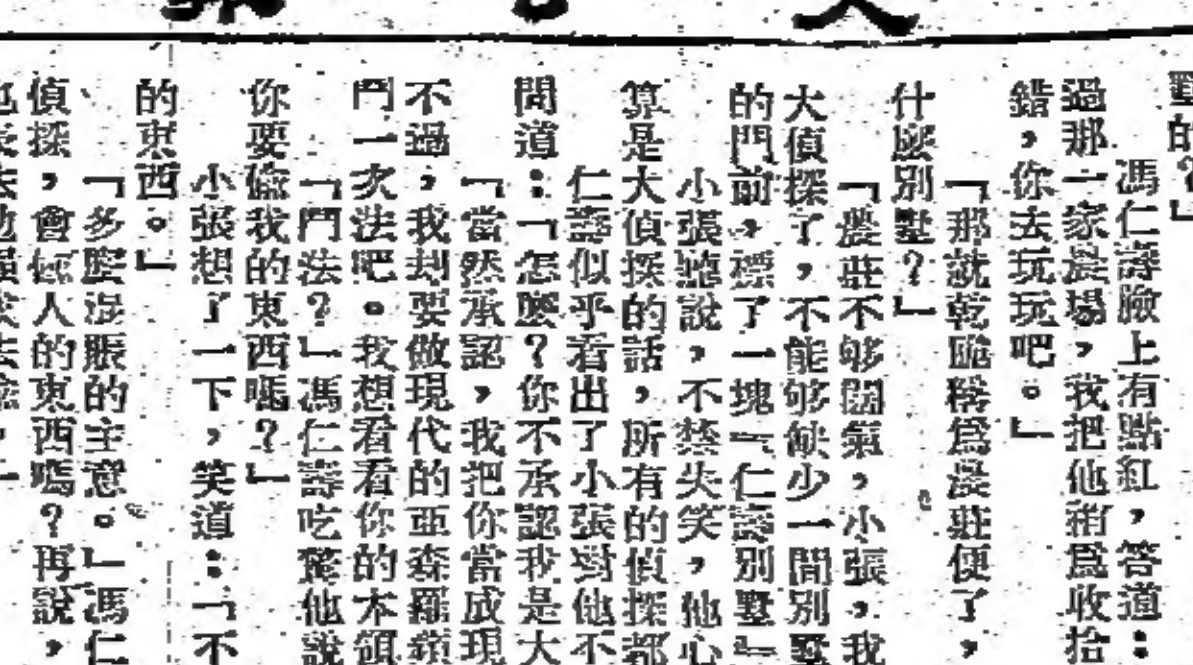 墅的？」
馮仁壽臉上有點紅，答道：
過那一家農場，我把他稍爲收拾
錯，你去玩玩吧。」
「那就乾脆稱爲農莊便了，
什麽別墅？」
「農莊不够闊氣，小張，我
大偵探了，不能够缺少一間別墅
的門前，標了一塊「仁壽別墅」
小張聽說，不禁失笑，他心
算是大偵探的話，所有的偵探都
仁壽似乎看出了小張對他不
問道：「怎麽？你不承認我是大
「當然承認，我把你當成現
不過，我却要做現代的亞森羅蘋
鬥一次法吧。我想看看你的本領
「鬥法？」馮仁壽吃驚他說
你要偷我的東西嗎？」
小張想了一下，笑道：「不
的東西。」
「多麽混賬的主意。」馮仁
偵探，會偷人的東西嗎？再說，